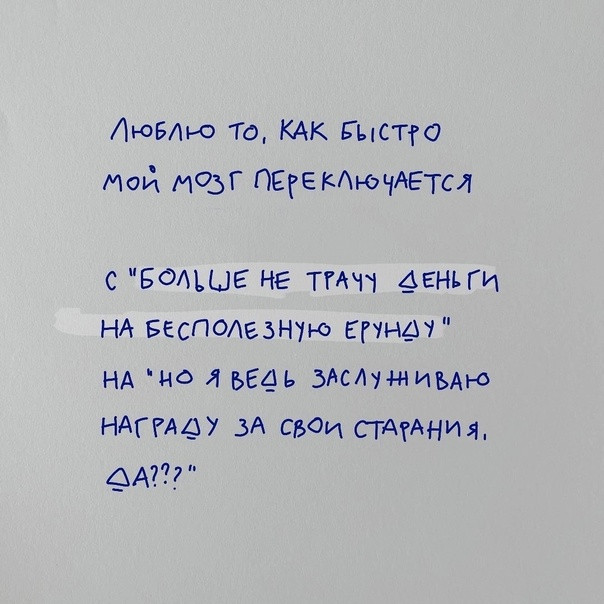 Люблю то, как быстро
мой мозг переключается
с "больше не трачу деньги
на бесполезную ерунду"
на "но я ведь заслуживаю
награду за свои старания,
да???"